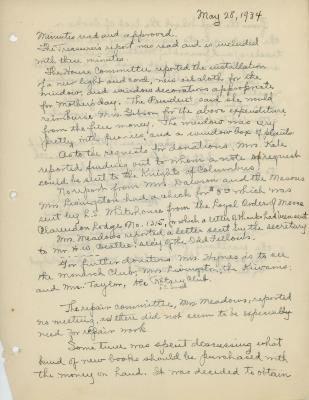 May 28, 1934
Minutes read and approved.
The Treasurers report was read and is included
with these minutes
The House Committee reported the installation
of a new light and cord, new oil cloth for the
window, and various decorations appropriate
for Mother's day. The President said she would
reimburse Mrs. Gibson for the above expenditure
from the fine money. The window was very
pretty with peonies, and a window box of plants
As to the requests for donations, Mrs. Hale
reported finding out to whom a note of request
could be sent to the Knights of Columbus.
No report from Mrs. Dawson and the Masons
Mrs. Livingston had a check for $5.00 which was
sent by R.S. Whitehouse from the Royal Order of Moose
Clarendon Lodge No. 1315, for which a letter of thanks had been sent
Mrs. Meadows reported a letter sent by the secretary
to Mr. H.W. Beattie, secy of the Odd Fellows.
For further donations Mrs. Hynes is to see
the Monarch Club, Mrs. Livingston, the Kiwanis;
and Mrs. Taylor, the Rotary Club.
The repair committee, Mrs Meadows, reported
no meeting, as there did not seem to be especially
need for repair work
Some time was spent discussing what
kind of new books should be purchased with
the money on hand. It was decided to obtain